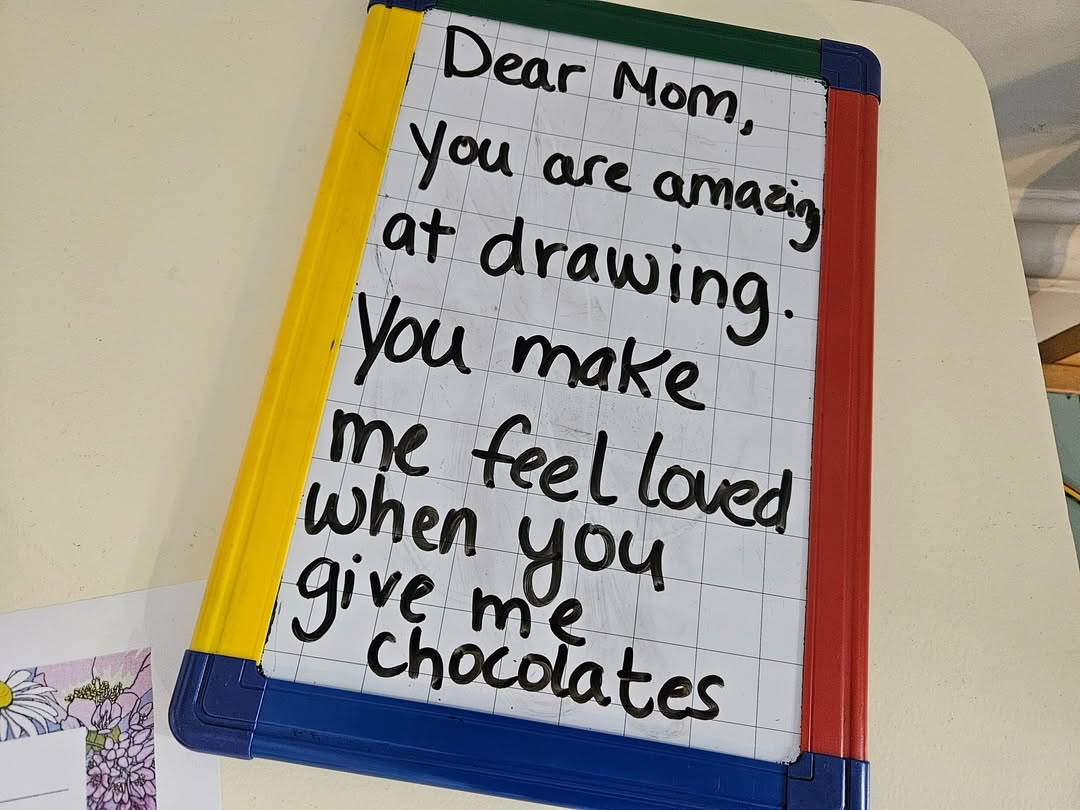 Dear Mom,
you are amazing
at drawing.
You make
me feel loved
when you
give me
chocolates